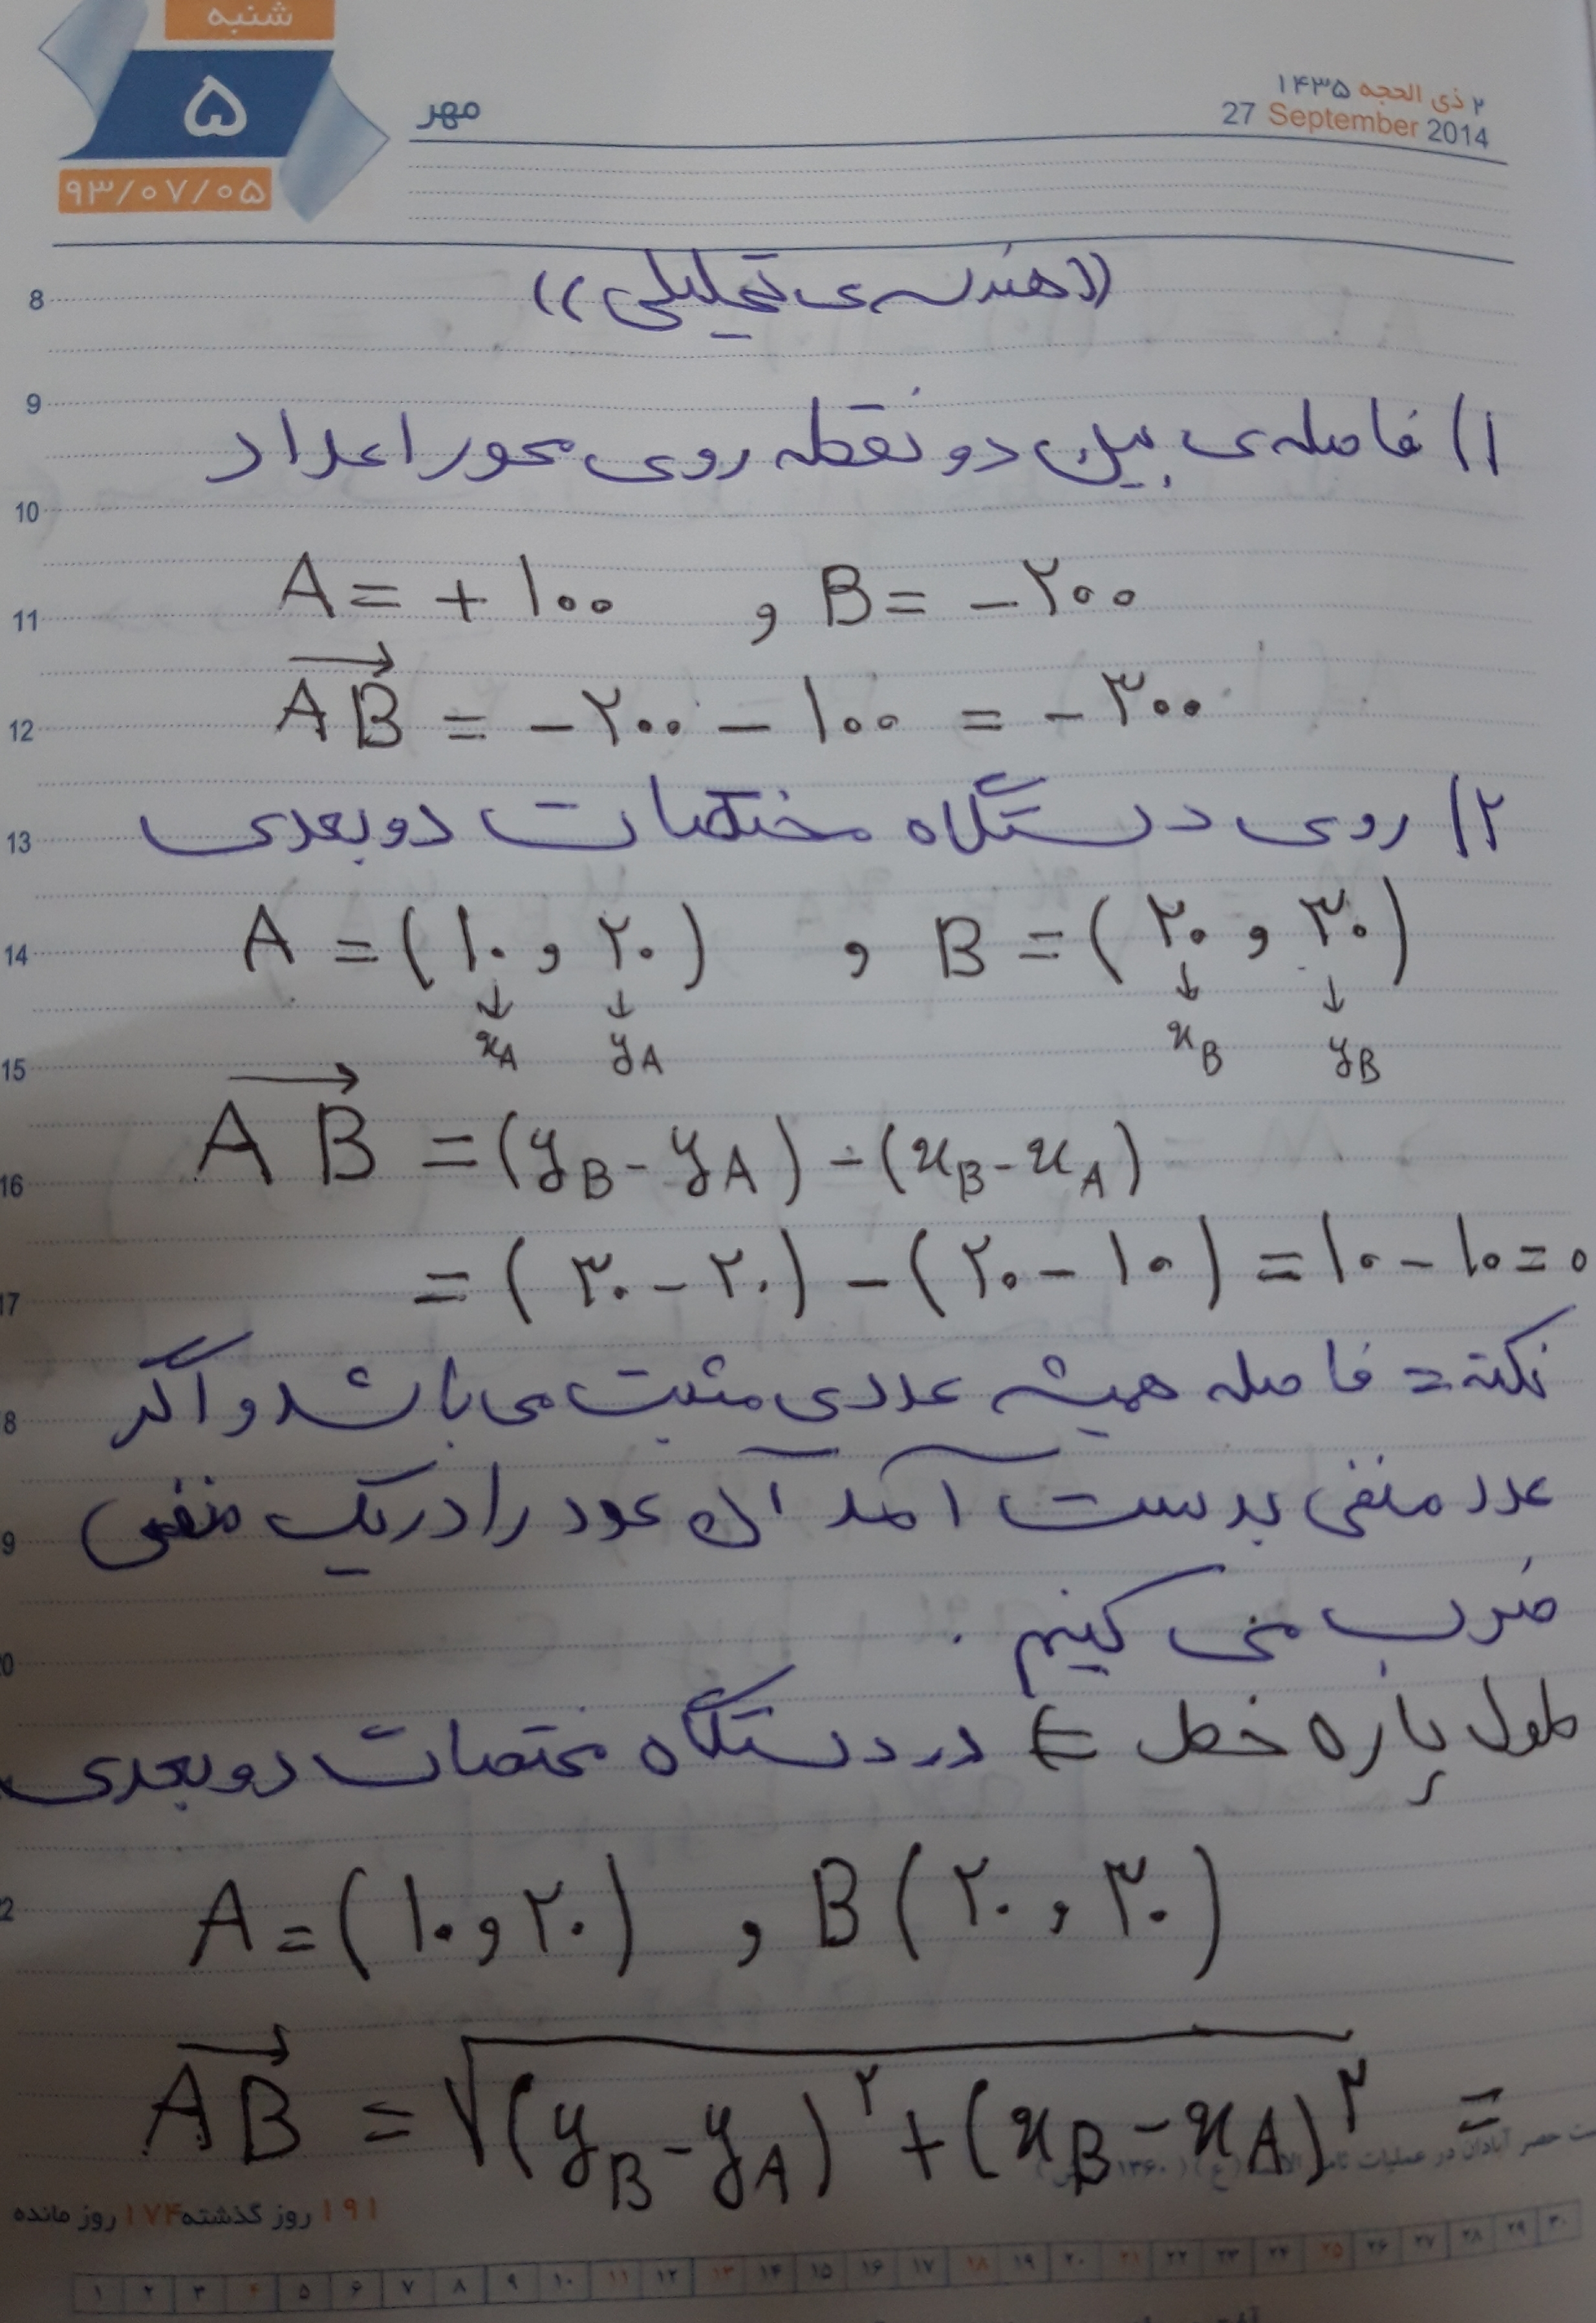 شنبه
۵
۹۳/۰۷/۰۵
مهر
۲ ذی الحجه ۱۴۳۵
27 September 2014
((هندسه‌ی تحلیلی))
۱) فاصله‌ی بین دو نقطه روی محور اعداد
A = + ۱۰۰ , B = - ۲۰۰
AB = - ۲۰۰ - ۱۰۰ = - ۳۰۰
۲) روی دستگاه مختصات دو بعدی
A = (۱۰ , ۲۰) , B = (۲۰ , ۳۰)
↓ ↓ ↓ ↓
xA yA xB yB
AB = (yB - yA) - (xB - xA)
= (۳۰ - ۲۰) - (۲۰ - ۱۰) = ۱۰ - ۱۰ = ۰
نکته = فاصله همیشه عددی مثبت می باشد و اگر
عدد منفی بدست آمد آن عدد را در یک منفی
ضرب می کنیم .
طول پاره خط ⇐ در دستگاه مختصات دو بعدی
A = (۱۰ , ۲۰) , B (۲۰ , ۳۰)
AB = √(yB - yA)² + (xB - xA)² =
۱۹۱ روز گذشته ۱۷۴ روز مانده
8
9
10
11
12
13
14
15
16
17
8
9
0
2
۱ ۲ ۳ ۴ ۵ ۶ ۷ ۸ ۹ ۱۰ ۱۱ ۱۲ ۱۳ ۱۴ ۱۵ ۱۶ ۱۷ ۱۸ ۱۹ ۲۰ ۲۱ ۲۲ ۲۳ ۲۴ ۲۵ ۲۶ ۲۷ ۲۸ ۲۹ ۳۰